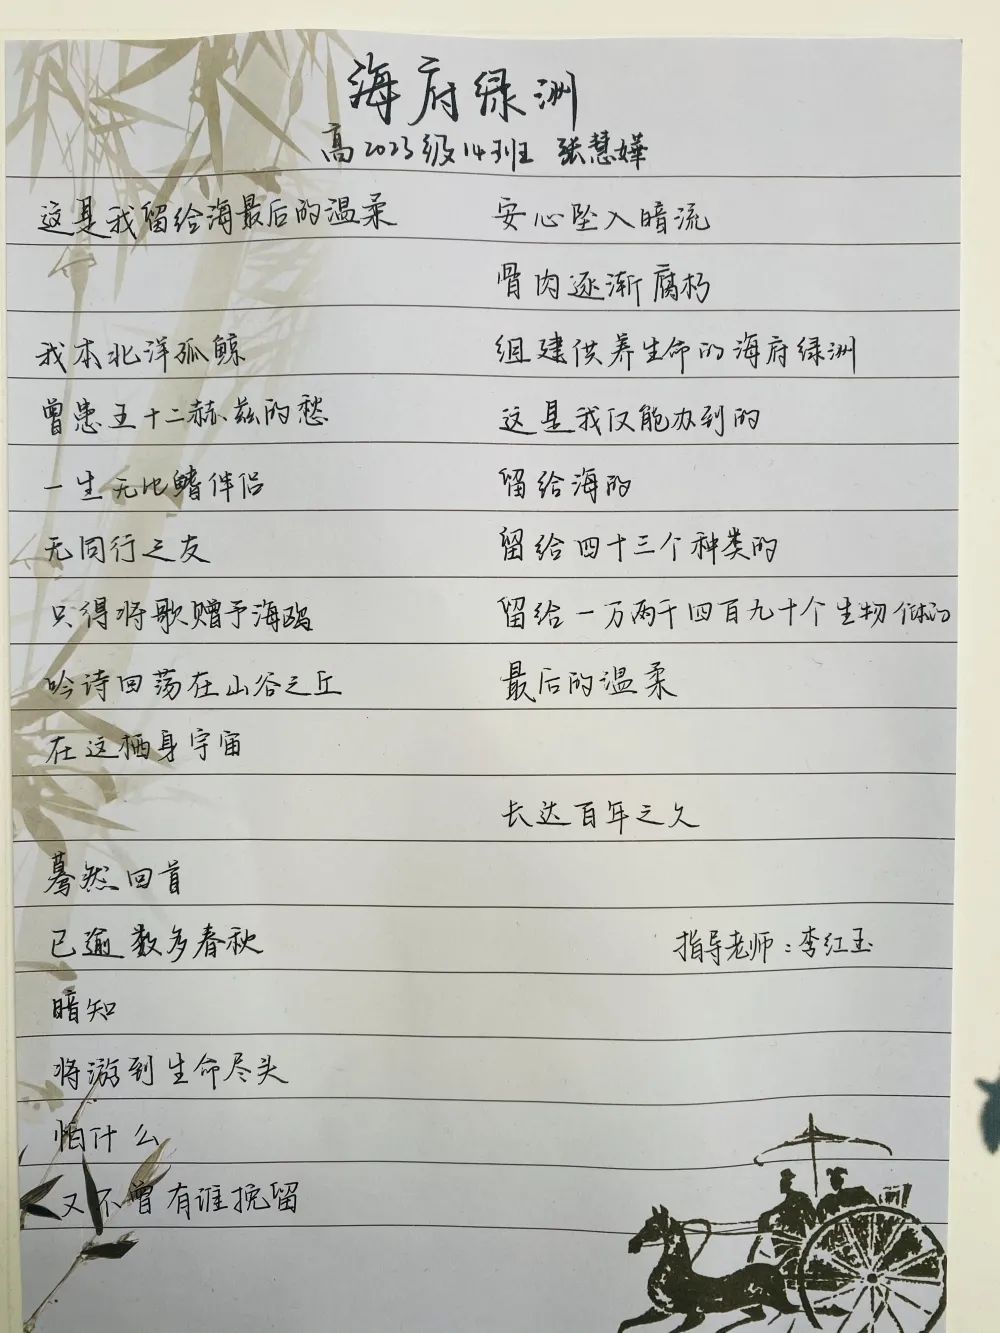 海府绿洲
高2023级14班 张慧婵
这是我留给海最后的温柔
我本北洋孤鲸
曾患五十二赫兹的愁
一生无比鳍伴侣
无同行之友
只得将歌赠予海鸥
吟诗回荡在山谷之丘
在这栖身宇宙
蓦然回首
已逾数多春秋
暗知
将游到生命尽头
怕什么
又不曾有谁挽留
安心坠入暗流
骨肉逐渐腐朽
组建供养生命的海府绿洲
这是我仅能办到的
留给海的
留给四十三个种类的
留给一万两千四百九十个生物体的
最后的温柔
长达百年之久
指导老师：李红玉